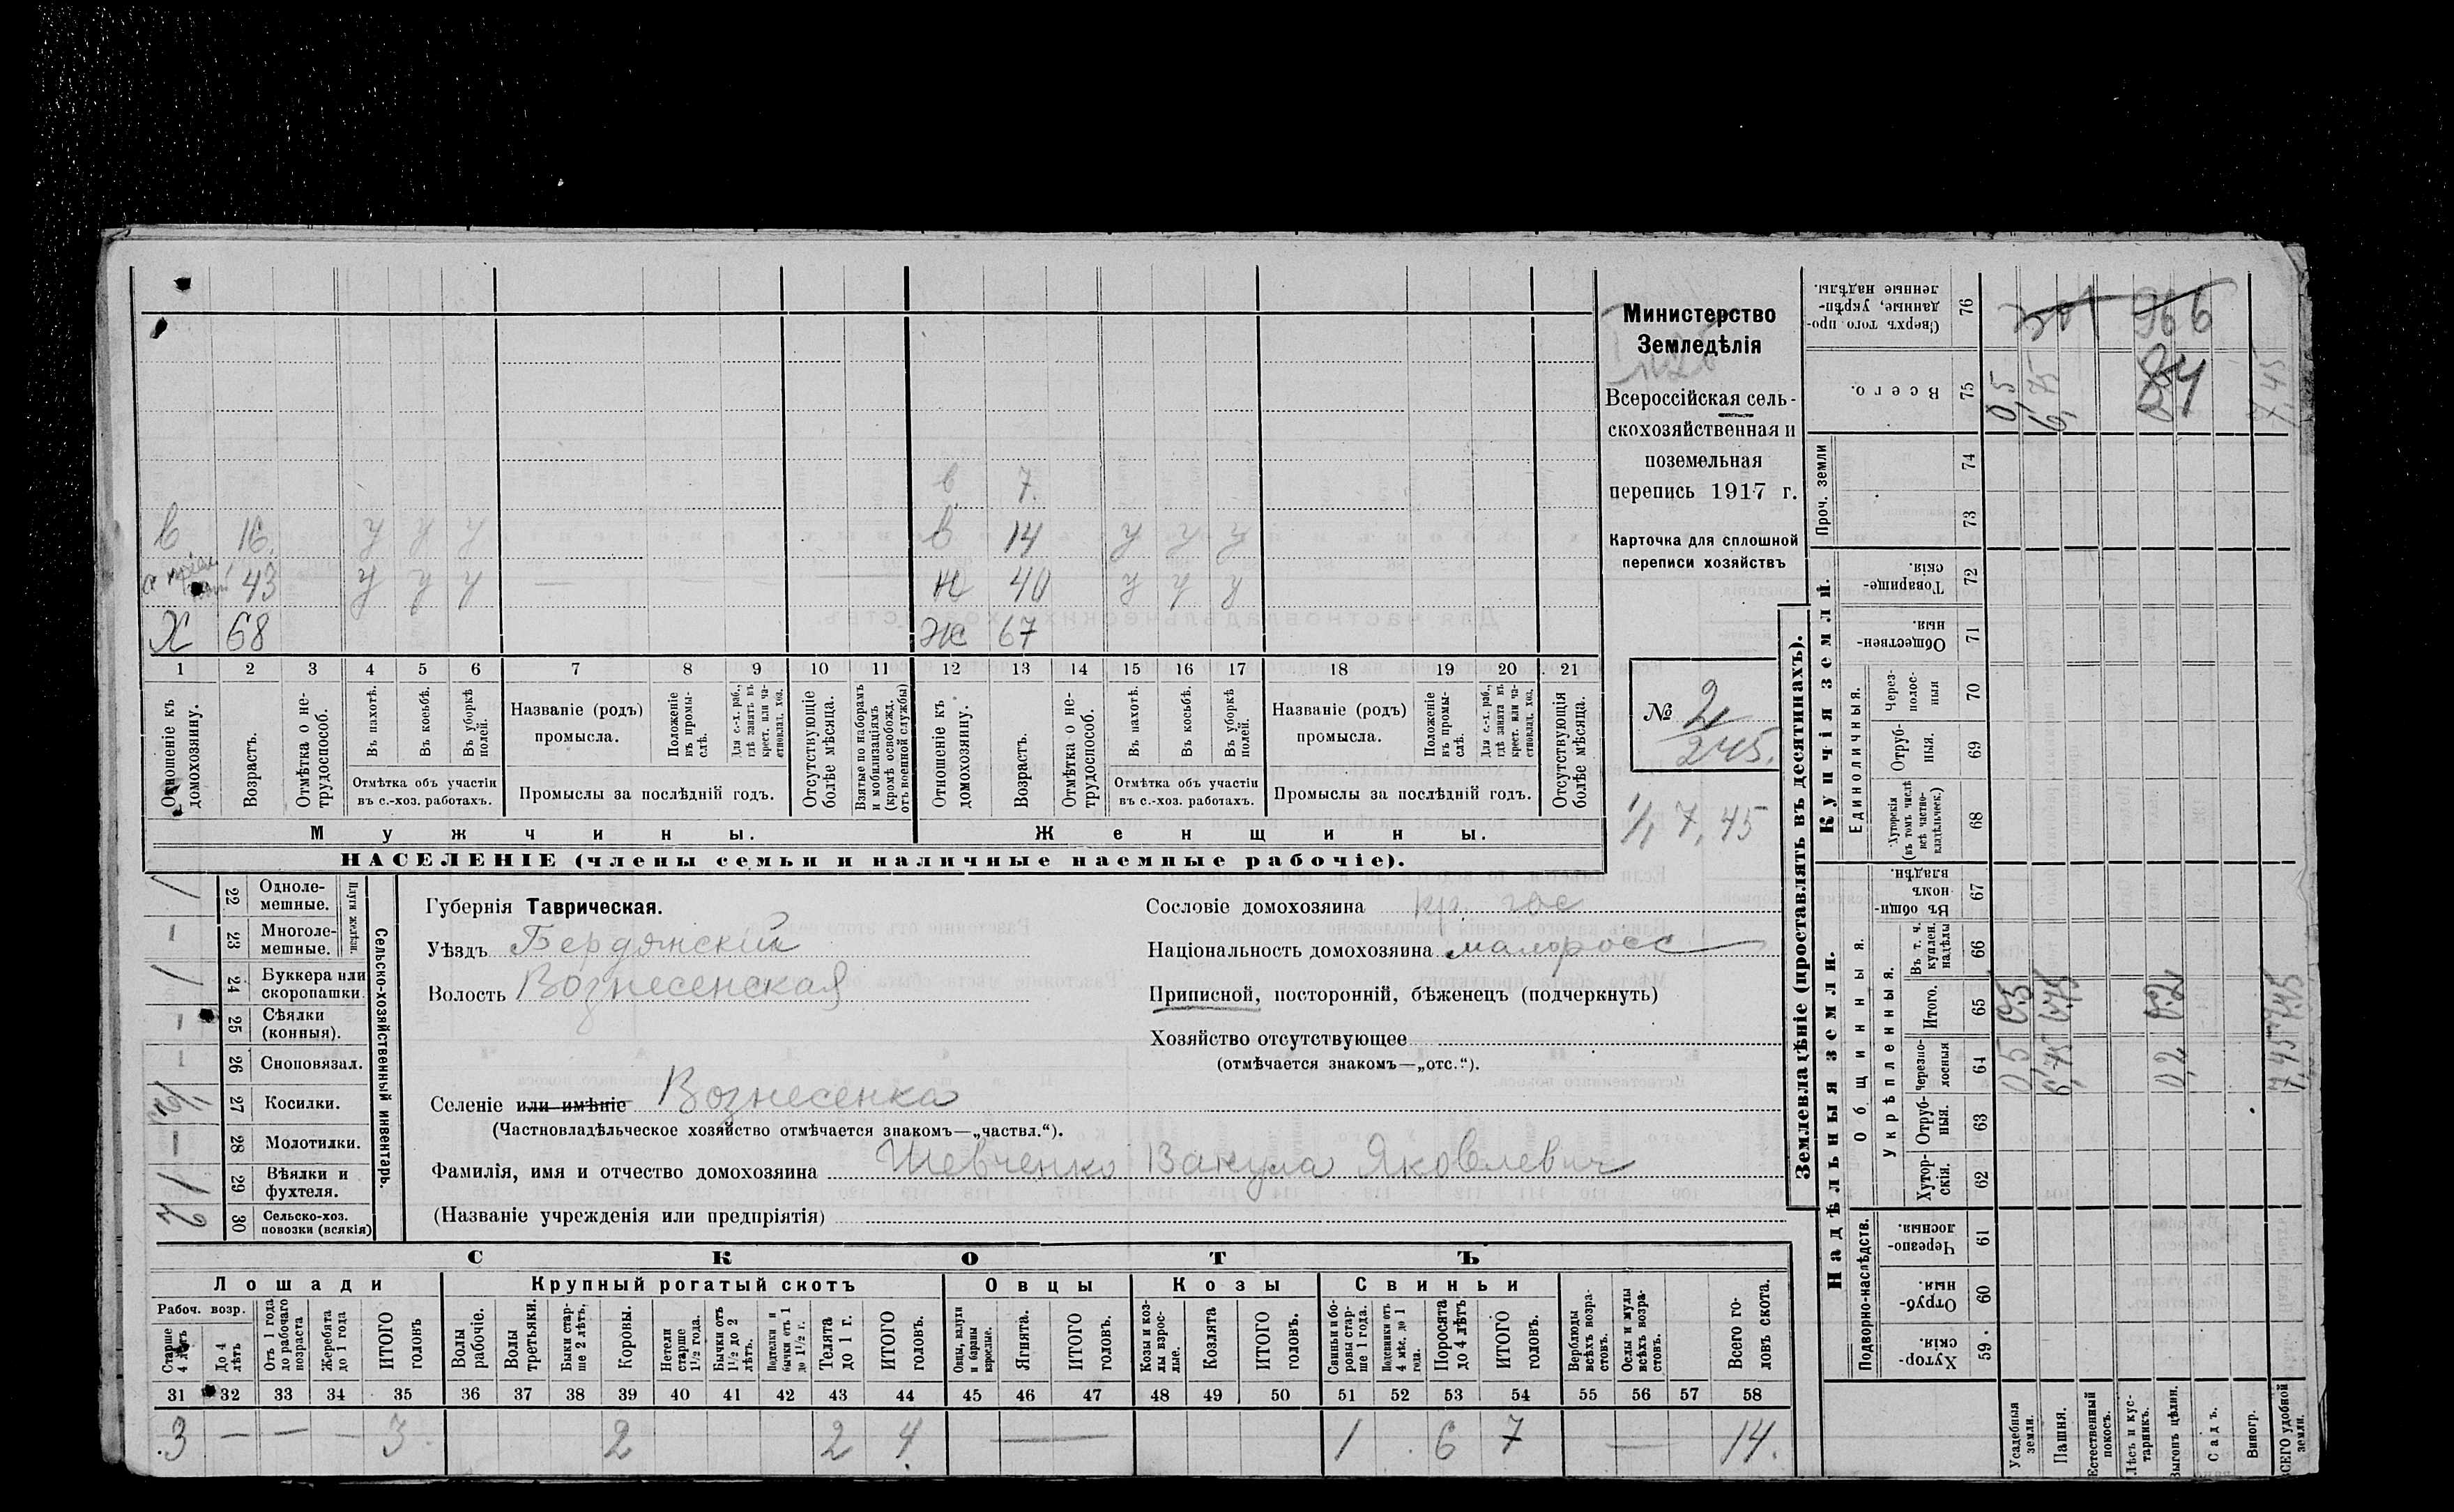 Министерство
Земледѣлія
Всероссійская сель-
скохозяйственная и
поземельная
перепись 1917 г.
Карточка для сплошной
переписи хозяйствъ
№ 2
245.
1/1 7,45
в 7.
в 16. у у у в 14 у у у
43 у у у — — ж 40 у у у
Х 68 ж 67
1 2 3 4 5 6 7 8 9 10 11 12 13 14 15 16 17 18 19 20 21
Отношеніе къ домохозяину.
Возрастъ.
Отмѣтка о не-трудоспособ.
Въ пахотѣ.
Въ косьбѣ.
Въ уборкѣ полей.
Отмѣтка объ участіи
въ с.-хоз. работахъ.
Названіе (родъ)
промысла.
Положеніе въ промы-слѣ.
Для с.-х. раб., гдѣ занятъ въ крест. или ча-стновлад. хоз.
Промыслы за послѣдній годъ.
Отсутствующіе болѣе мѣсяца.
Взятые по наборамъ и мобилизаціямъ (кромѣ освобожд. отъ военной службы)
Отношеніе къ домохозяину.
Возрастъ.
Отмѣтка о не-трудоспособ.
Въ пахотѣ.
Въ косьбѣ.
Въ уборкѣ полей.
Отмѣтка объ участіи
въ с.-хоз. работахъ.
Названіе (родъ)
промысла.
Положеніе въ промы-слѣ.
Для с.-х. раб., гдѣ занята въ крест. или ча-стновлад. хоз.
Промыслы за послѣдній годъ.
Отсутствующія болѣе мѣсяца.
Мужчины. Женщины.
НАСЕЛЕНІЕ (члены семьи и наличные наемные рабочіе).
Сельско-хозяйственный инвентарь.
22 Одноле-мешные.
23 Многоле-мешные.
24 Буккера или скоропашки.
25 Сѣялки (конныя).
26 Сноповязал.
27 Косилки.
28 Молотилки.
29 Вѣялки и фухтеля.
30 Сельско-хоз. повозки (всякія)
Губернія Таврическая.
Уѣздъ Бердянский
Волость Вознесенская
Селеніе или имѣніе Вознесенка
(Частновладѣльческое хозяйство отмѣчается знакомъ—„частвл.“).
Фамилія, имя и отчество домохозяина Шевченко Вакула Яковлевич
(Названіе учрежденія или предпріятія)
Сословіе домохозяина кр. гос
Національность домохозяина малоросс
Приписной, посторонній, бѣженецъ (подчеркнуть)
Хозяйство отсутствующее
(отмѣчается знакомъ—„отс.“).
СКОТЪ
Лошади Крупный рогатый скотъ Овцы Козы Свиньи
Рабоч. возр.
Старше 4 лѣтъ
До 4 лѣтъ
Отъ 1 года до рабочаго возраста
Жеребята до 1 года
ИТОГО головъ
Волы рабочіе.
Волы третьяки.
Быки стар-ше 2 лѣтъ.
Коровы.
Нетели старше 1½ года.
Бычки отъ 1½ до 2 лѣтъ.
Подтелки и бычки отъ 1 до 1½ г.
Телята до 1 г.
ИТОГО головъ.
Овцы, валухи и бараны взрослые.
Ягнята.
ИТОГО головъ.
Козы и коз-лы взрос-лые.
Козлята
ИТОГО головъ.
Свиньи и бо-ровы стар-ше 1 года.
Подсвинки отъ 4 мѣс. до 1 года.
Поросята до 4 лѣтъ
ИТОГО головъ.
Верблюды всѣхъ возра-стовъ.
Ослы и мулы всѣхъ возра-стовъ.
Всего го-ловъ скота.
31 32 33 34 35 36 37 38 39 40 41 42 43 44 45 46 47 48 49 50 51 52 53 54 55 56 57 58
3 — — — 3 2 2 4 — 1 6 7 — 14.
Землевладѣніе (проставлять въ десятинахъ).
Купчія земли.
Надѣльныя земли.
Сверхъ того про-данные, укрѣп-ленные надѣлы. 76
Всего. 75 0,5 6,75 7,45
Проч. земли 74
73
Товарище-скія. 72
Обществен-ныя. 71
Единоличныя.
Через-полос-ныя 70
Отруб-ныя. 69
Хуторскія (въ томъ числѣ всѣ частно-владѣльческ.) 68
Общинныя.
Въ общин-номъ владѣн. 67
Укрѣпленныя.
Въ т. ч. куплен. надѣлы 66
Итого. 65
Черезпо-лосныя 64 0,5 6,75 0,2 7,45
Отруб-ныя. 63
Хутор-скія. 62
Подворно-наслѣдств.
Черезпо-лосныя. 61
Отруб-ныя. 60
Хутор-скія. 59
Усадебныя земли.
Пашня.
Естественный покосъ.
Лѣсъ и кус-тарникъ.
Выгонъ цѣлин.
Садъ.
Виногр.
ВСЕГО удобной земли.